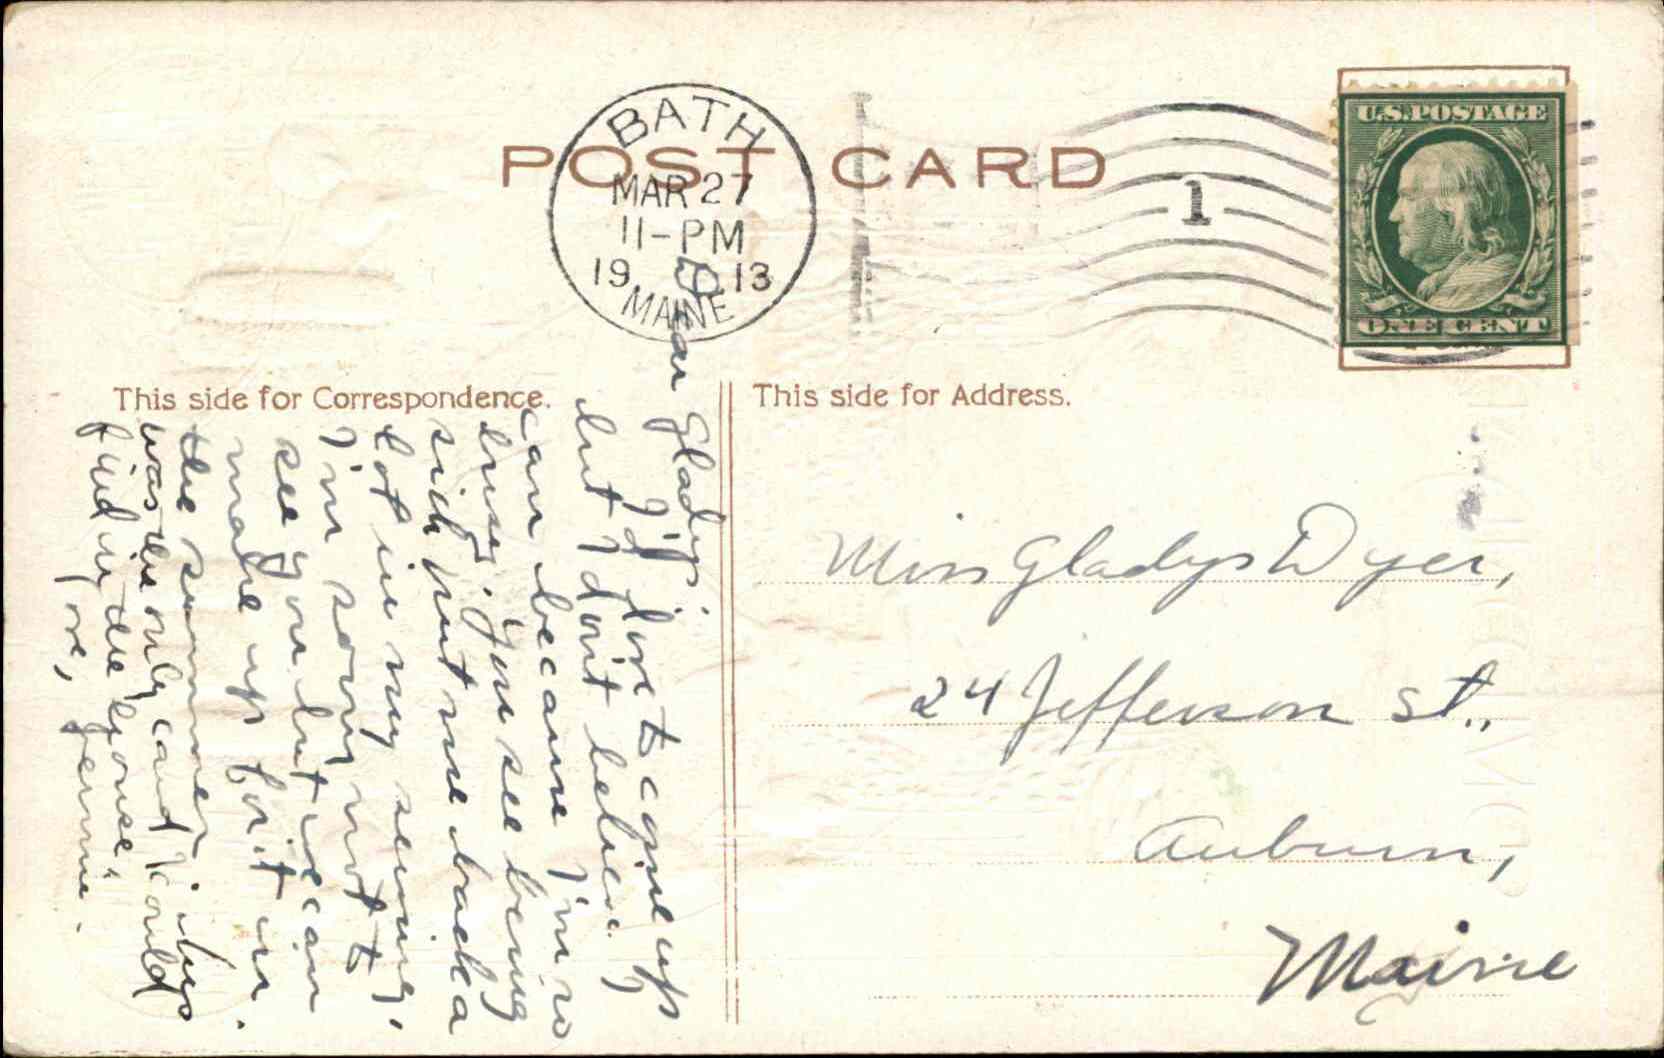 POST CARD
BATH
MAR 27
11-PM
1913
MAINE
1
U.S. POSTAGE
ONE CENT
This side for Correspondence.
This side for Address.
Dear Gladys:
I'd love to come up
but I don't believe I
can because I'm so
busy. You see being
sick put me back a
lot in my sewing,
I'm sorry not to
see you but we can
make up for it in
the summer
was the only card I could
find in the house."
Love, Jennie.
Miss Gladys Dyer,
24 Jefferson St.,
Auburn,
Maine